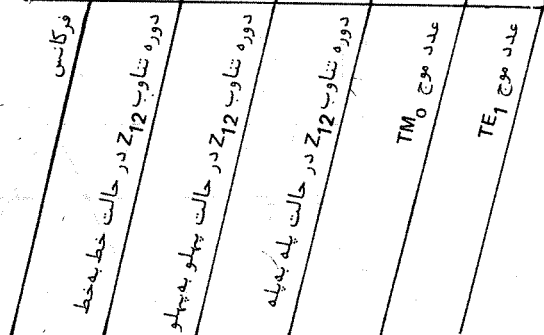 فرکانس
دوره تناوب Z12 در حالت خط به خط
دوره تناوب Z12 در حالت پهلو به پهلو
دوره تناوب Z12 در حالت پله به پله
عدد موج TM0
عدد موج TE1